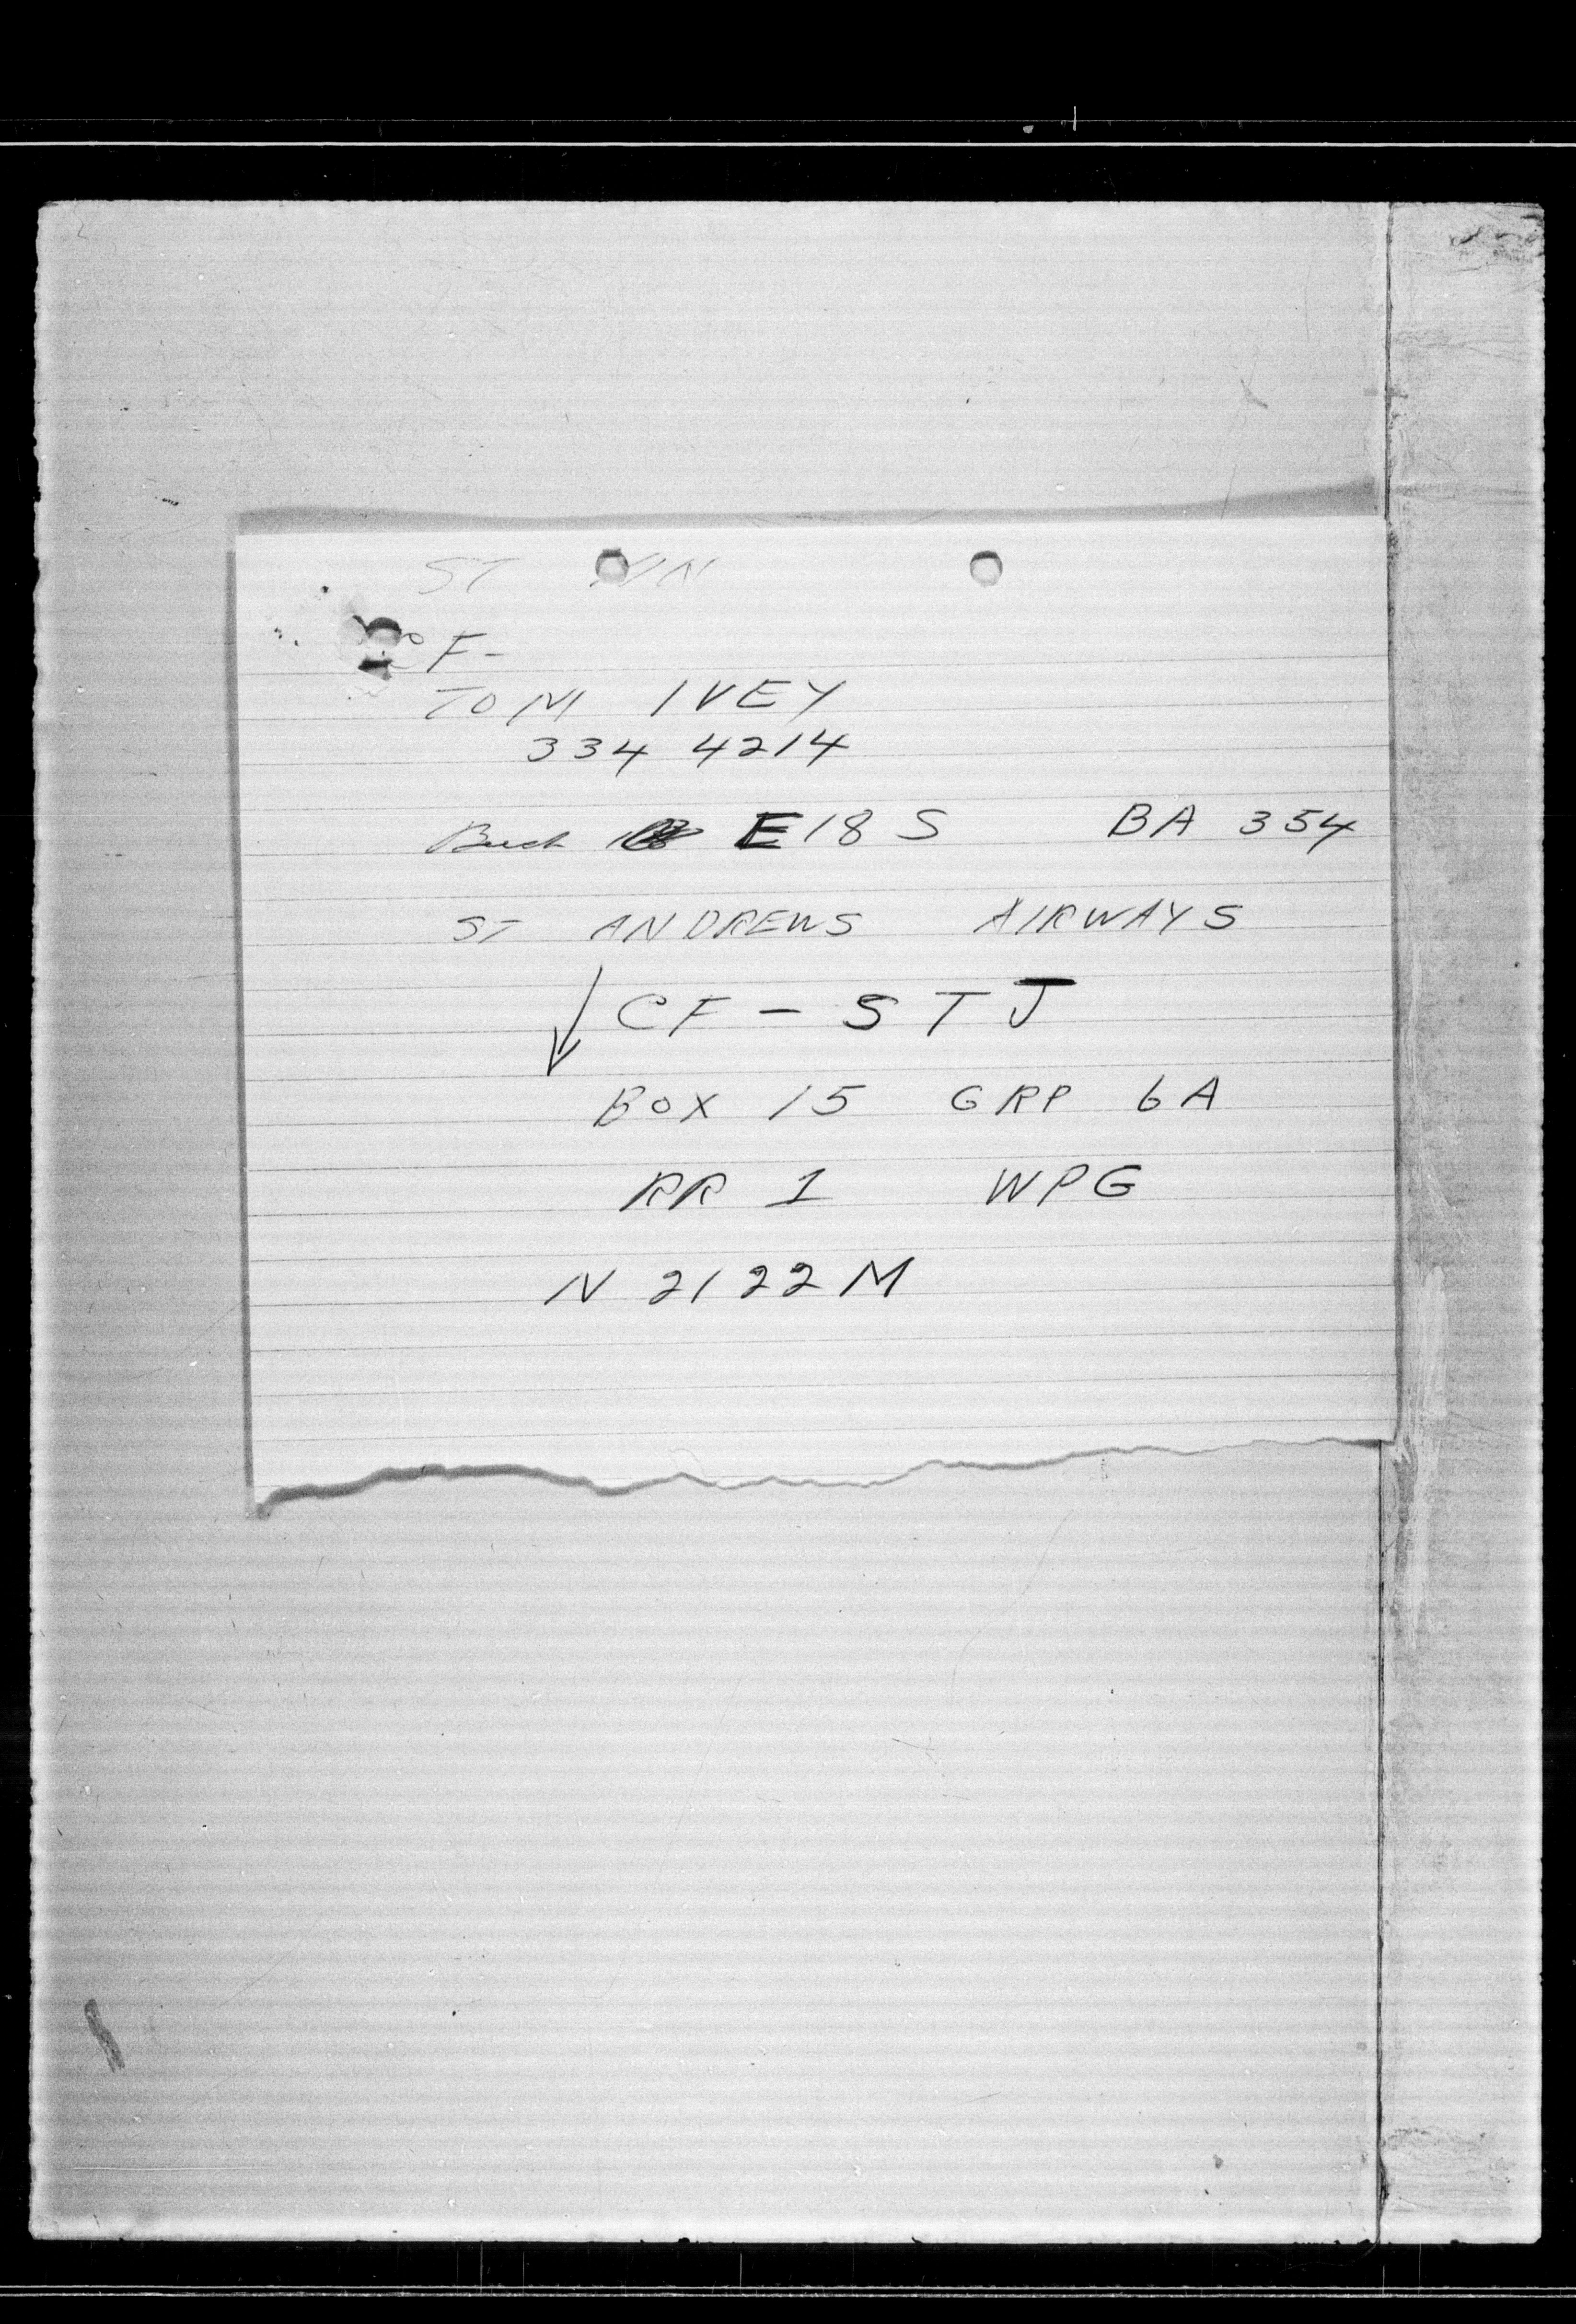 ST
CF-
TOM IVEY
334 4214
Beech E18S BA 354
ST ANDREWS AIRWAYS
CF-STJ
BOX 15 GRP 6A
RR 1 WPG
N2122M